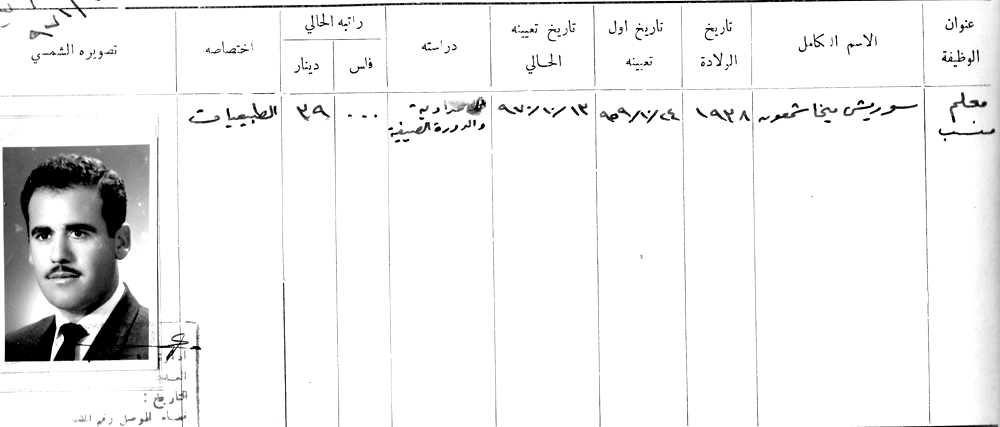 عنوان الوظيفة
الاسم الكامل
تاريخ الولادة
تاريخ اول تعيينه
تاريخ تعيينه الحالي
دراسته
راتبه الحالي
فلس
دينار
اختصاصه
تصويره الشمسي
معلم
منسب
سوريش ميخا شمعون
١٩٣٨
٩٥٩/١٠/٢٤
٩٧٠/١٠/١٣
والدورة الصيفية
...
٣٩
الطبيعيات
العدد
التاريخ :